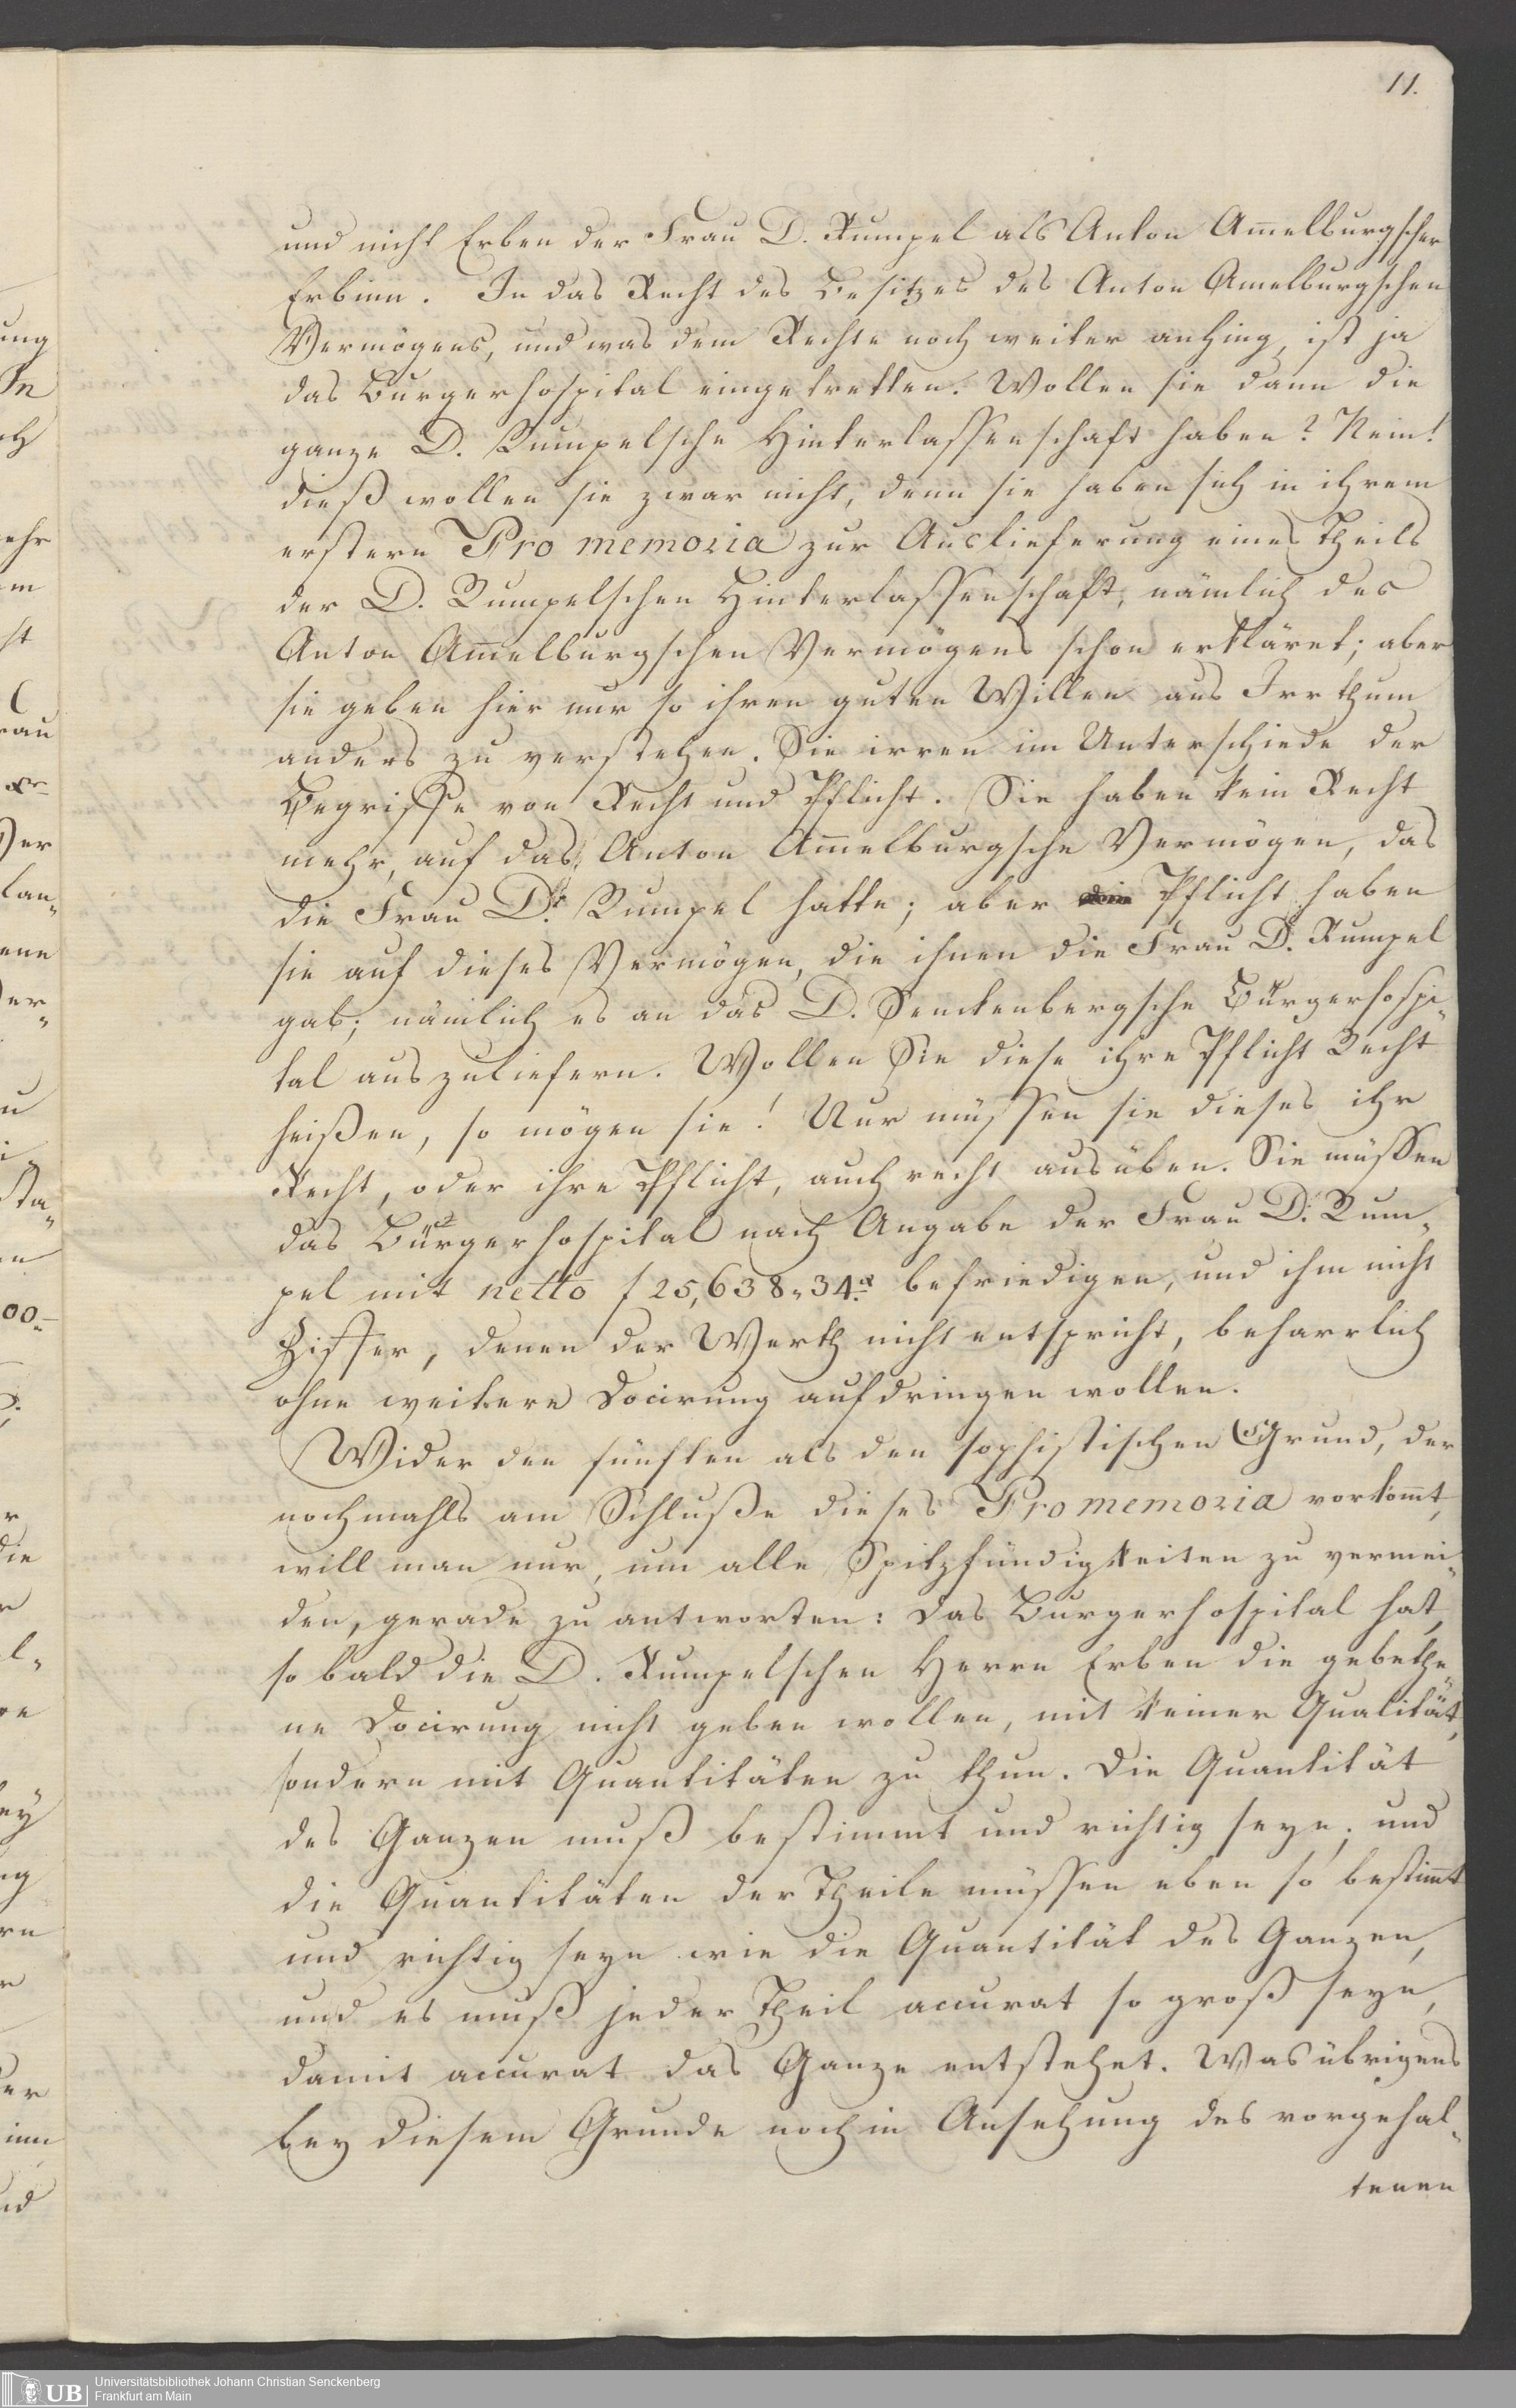 11.
und nicht Erben der Frau D. Rumpel als Anton Am̅elburgscher
Erbinn. In das Recht des Besitzes des Anton Amelburgschen
Vermögens, und was dem Rechte noch weiter anhing, ist ja
das Burgerhospital eingetretten. Wollen sie dann die
ganze D. Rumpelsche Hinterlassenschaft haben? Nein!
dieß wollen sie zwar nicht, denn sie haben sich in ihrem
erstern Pro memoria zur Auslieferung eines Theils
der D. Rumpelschen Hinterlassenschaft, nämlich des
Anton Am̅elburgschen Vermögens schon erkläret; aber
sie geben hier nur so ihren guten Willen aus Irrthum
anders zu verstehen. Sie irren im Unterschiede der
Begriffe von Recht und Pflicht. Sie haben kein Recht
mehr, auf das Anton Am̅elburgsche Vermögen, das
die Frau Dr. Rumpel hatte; aber Pflicht haben
sie auf dieses Vermögen, die ihnen die Frau D. Rumpel
gab; nämlich es an das D. Senckenbergsche Bürgerhospi„
tal auszuliefern. Wollen Sie diese ihre Pflicht Recht
heißen, so mögen sie! Nur müssen sie dieses ihr
Recht, oder ihre Pflicht, auch recht ausüben. Sie müssen
das Bürgerhospital nach Angabe der Frau D. Rum„
pel mit netto f 25,638„34 befriedigen, und ihm nicht
Ziffer, denen der Werth nicht entspricht, beharrlich
ohne weitere Docirung aufdringen wollen.
Wider den fünften als den sophistischen Grund, der
nochmahls am Schluße dieses Pro memoria vorkom̅t,
will man nur, um alle Spitzfündigkeiten zu vermei„
den, gerade zu antworten: das Burgerhospital hat,
so bald die D. Rumpelschen Herrn Erben die gebethe„
ne Docirung nicht geben wollen, mit keiner Qualität,
sondern mit Quantitäten zu thun. Die Quantität
des Ganzen muß bestimmt und richtig seyn; und
die Quantitäten der Theile müssen eben so bestim̅t
und richtig seyn wie die Quantität des Ganzen,
und es muß jeder Theil accurat so groß seyn,
damit accurat das Ganze entstehet. Was übrigens
bey diesem Grunde noch in Ansehung des vorgehal„
tenen
UB
Universitätsbibliothek Johann Christian Senckenberg
Frankfurt am Main